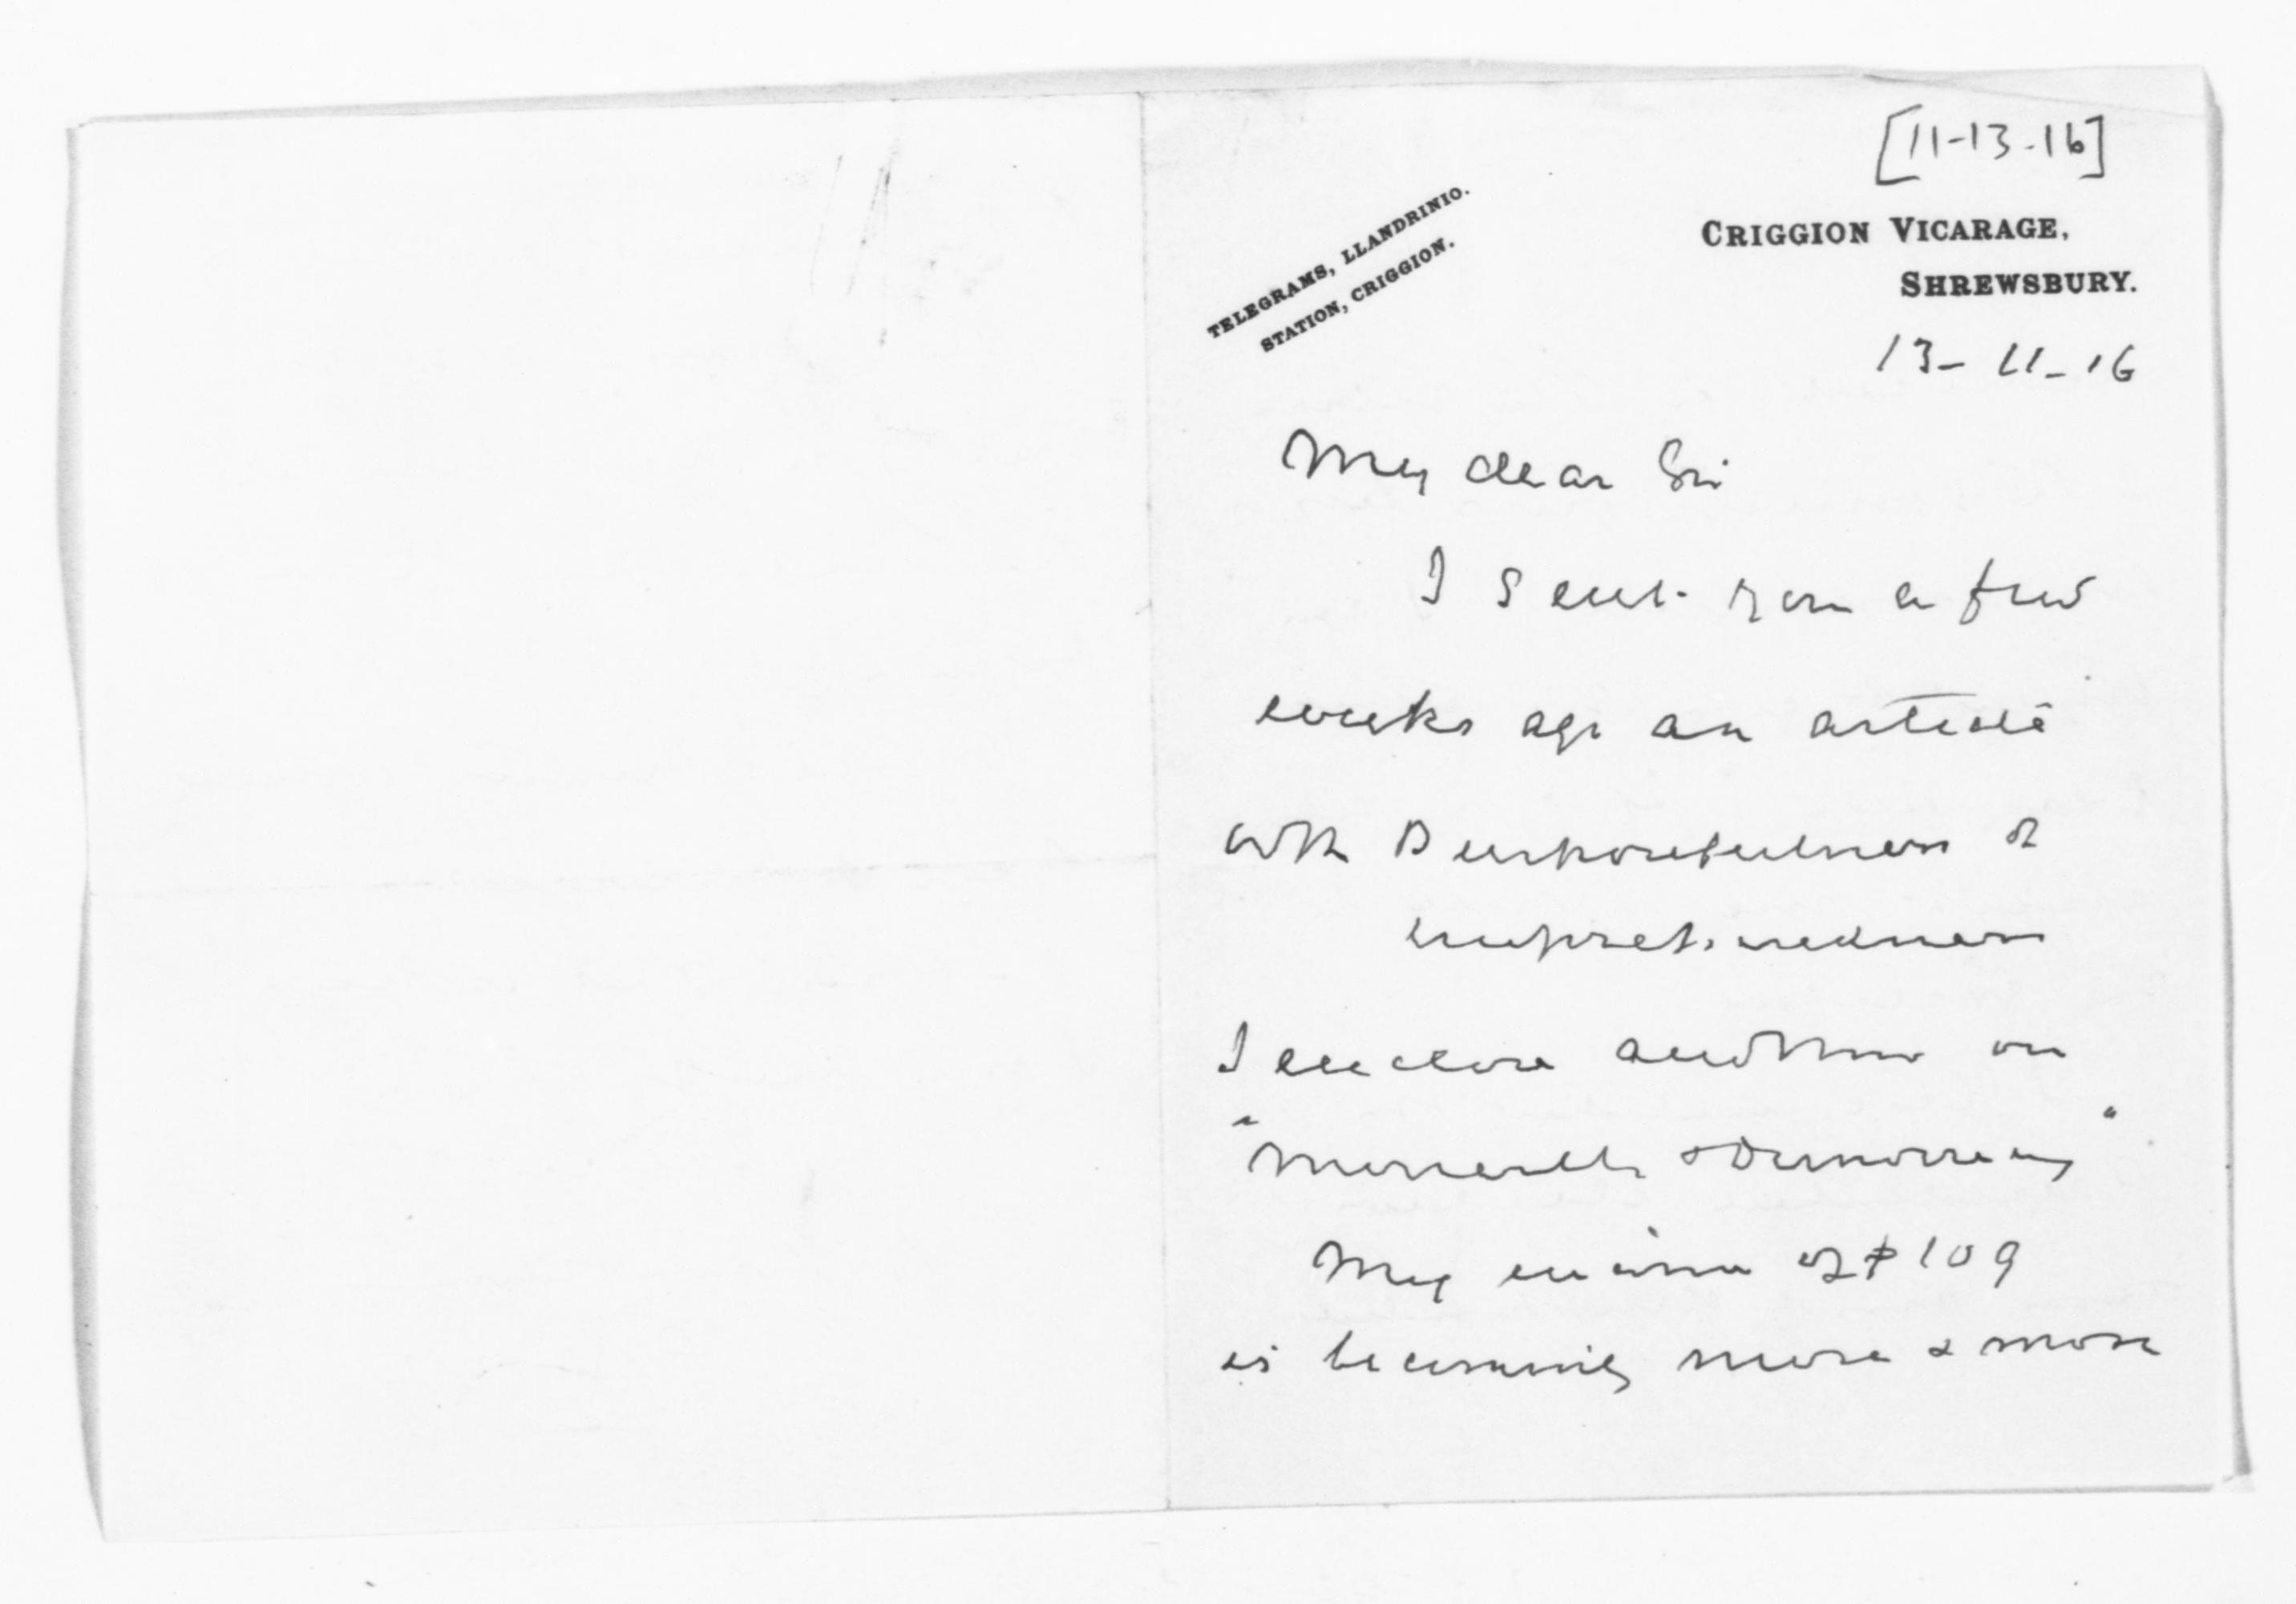 [11-13-16]
TELEGRAMS, LLANDRINIO.
STATION, CRIGGION.
CRIGGION VICARAGE,
SHREWSBURY.
13-11-16
My dear Sir
I sent you a few
weeks ago an article
on the Purposefulness of
I enclose another on
"Monarch & Democracy"
My income of £109
is becoming more & more